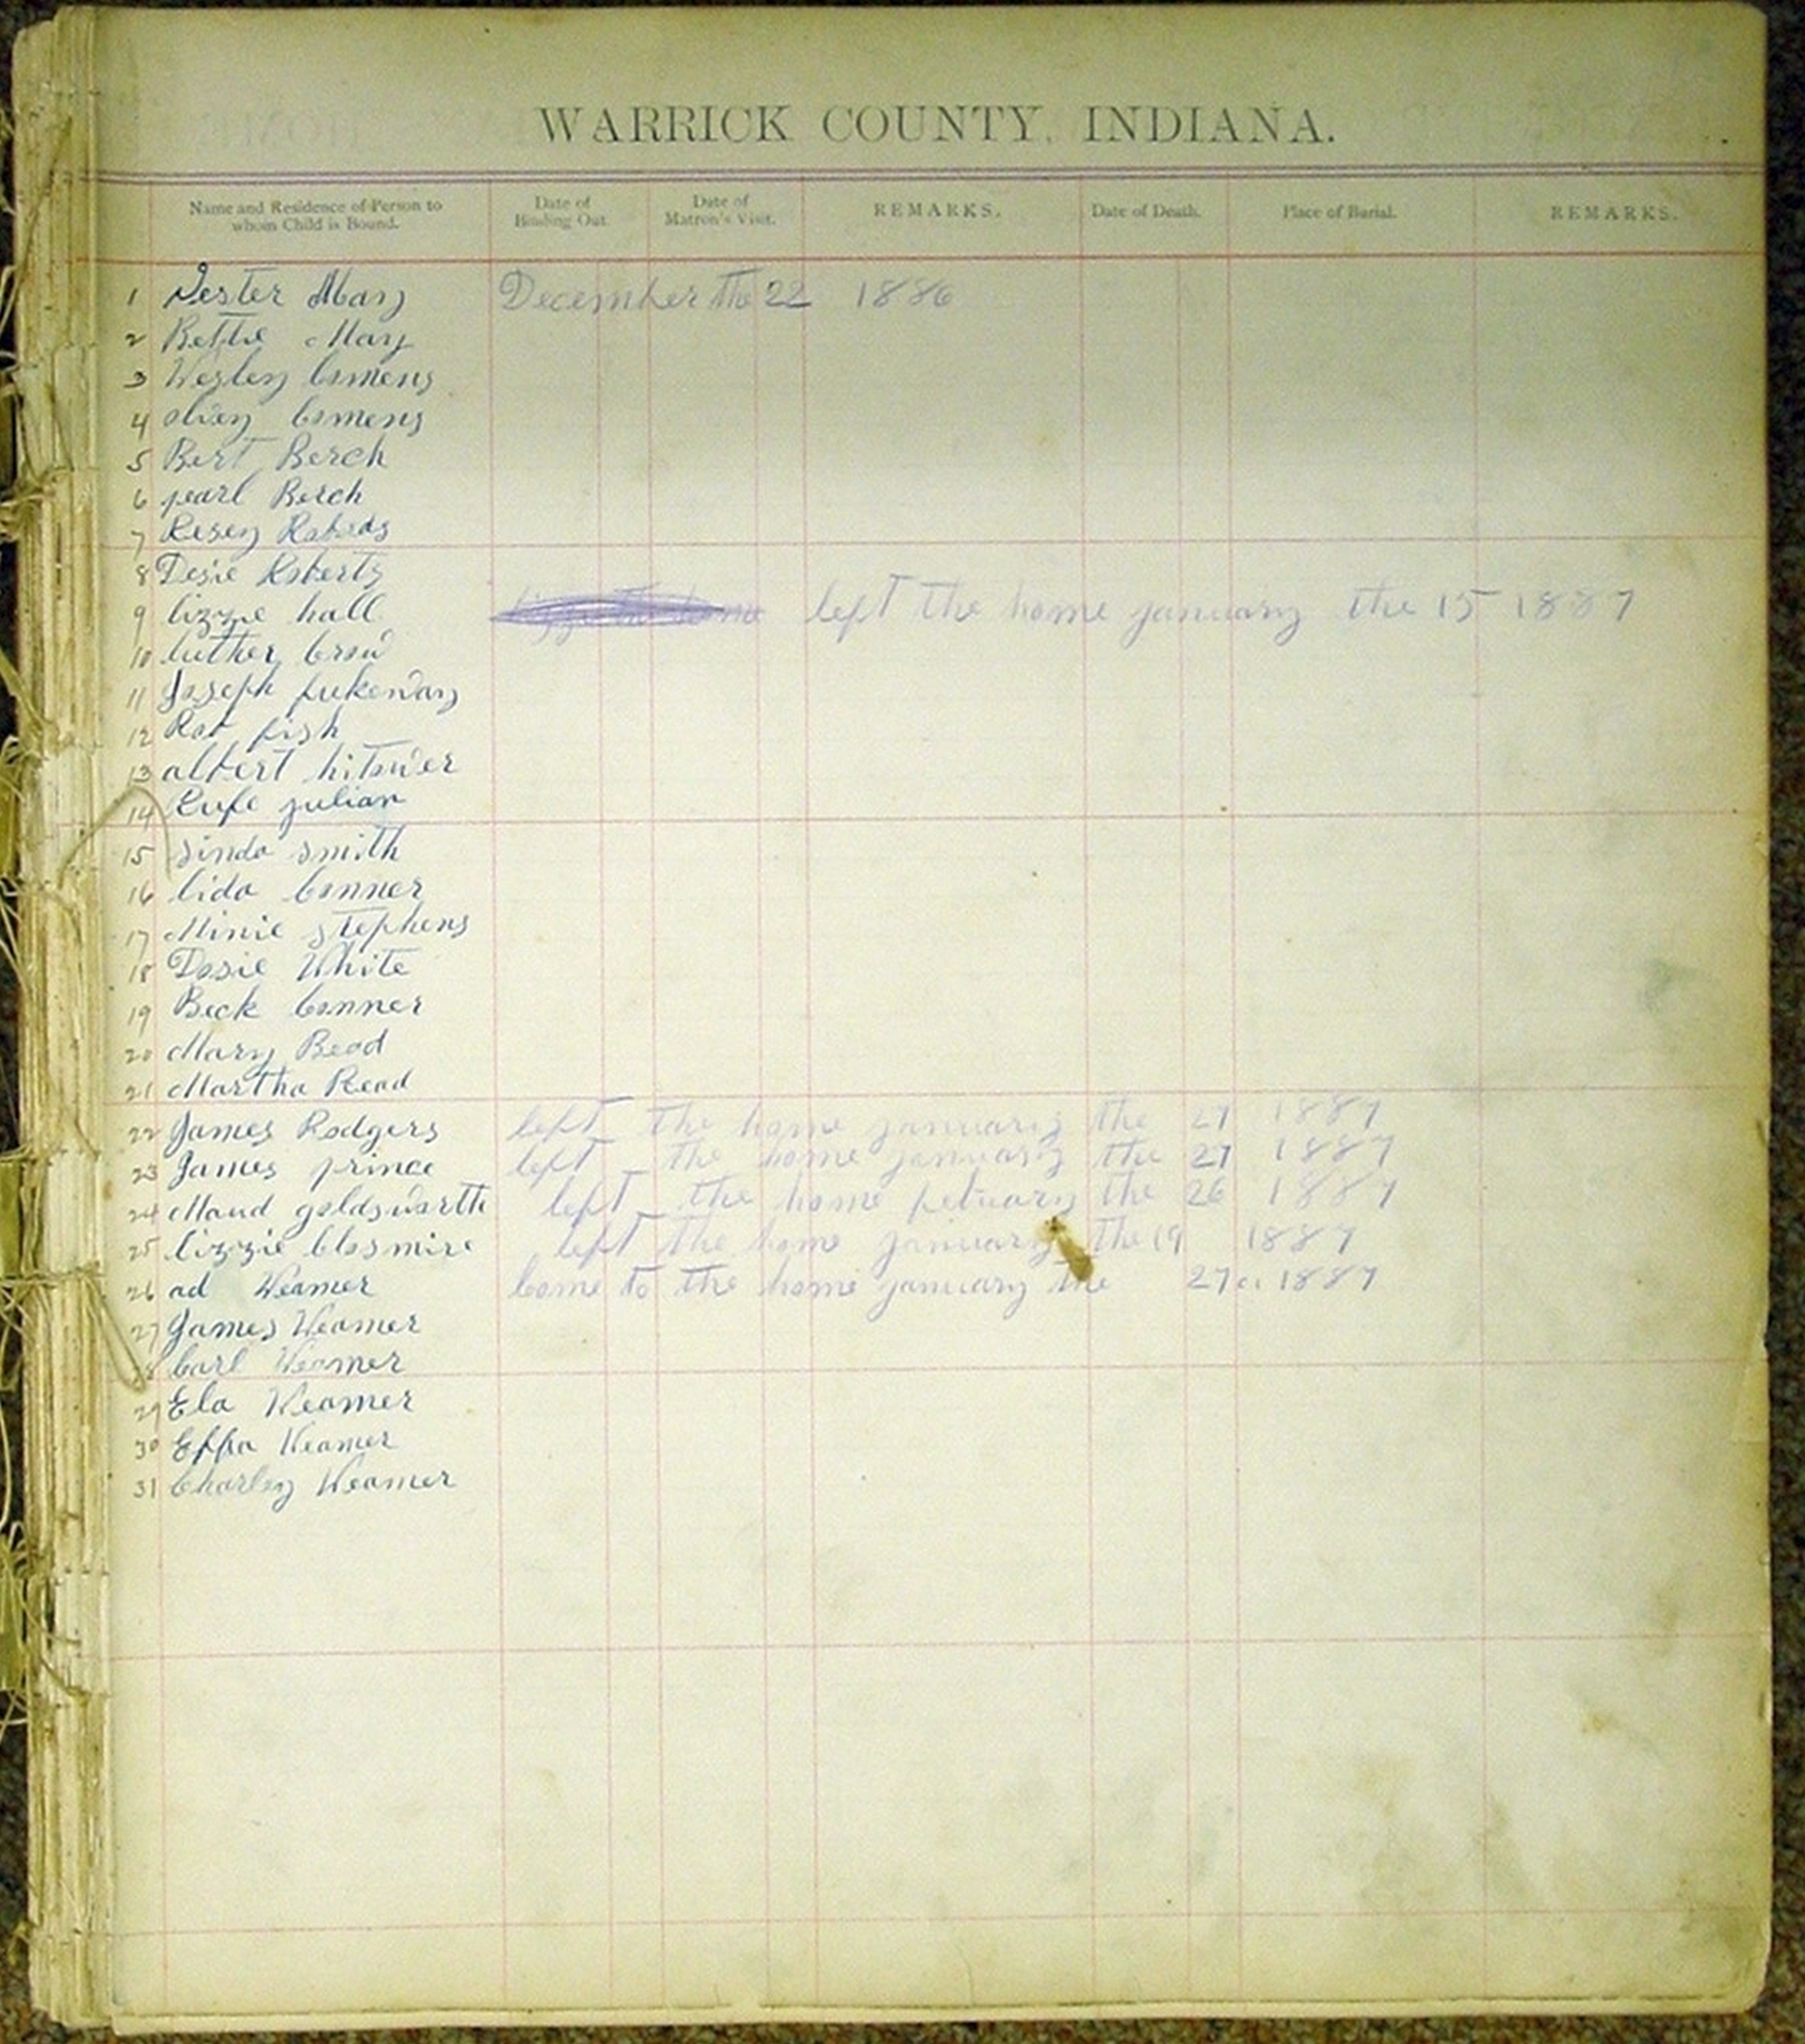 WARRICK COUNTY, INDIANA.
Name and Residence of Person to whom Child is Bound. Date of Binding Out. Date of Matron's Visit. REMARKS. Date of Death. Place of Burial. REMARKS.
1 Vester May December the 22 1886
2 Bettie May
3 Wesley Comens
4 olivey Comens
5 Bert Berch
6 pearl Berch
7 Rosey
8 Dosie Roberts
9 lizzie hall left the home january the 15 1887
10 luther Crow
11 Joseph fukeway
12 Rat fish
13 albert hitower
14 Rufe julian
15 sinda smith
16 lida Conner
17 Minie stephens
18 Dosie White
19 Beck Conner
20 Mary Read
21 Martha Read
22 James Rodgers left the home january the 27 1887
23 James prince left the home january the 27 1887
24 Maud goldswarth left the home the 26 1887
25 lizzie Closmire left the home january the 19 1887
26 ad Weamer Come to the home january the 27 1887
27 James Weamer
28 Carl Weamer
29 Ela Weamer
30 Effa Weamer
31 Charley Weamer